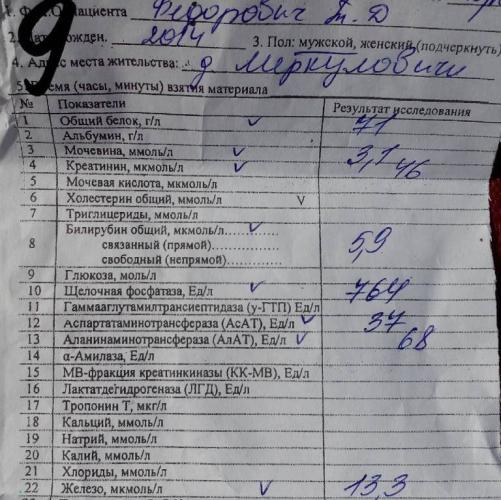 1. Ф. И. О. пациента Федорович Т. Д
2. Дата рожден. 2014 3. Пол: мужской, женский (подчеркнуть)
4. Адрес места жительства: д Меркуловичи
5. Время (часы, минуты) взятия материала
№ Показатели Результат исследования
1 Общий белок, г/л V 71
2 Альбумин, г/л
3 Мочевина, ммоль/л V 3,1
4 Креатинин, мкмоль/л V 46
5 Мочевая кислота, мкмоль/л
6 Холестерин общий, ммоль/л V
7 Триглицериды, ммоль/л
8 Билирубин общий, мкмоль/л......... V 5,9
связанный (прямой)...............
свободный (непрямой)...........
9 Глюкоза, моль/л
10 Щелочная фосфатаза, Ед/л V 764
11 Гаммааглутамилтрансиептидаза (у-ГТП) Ед/л
12 Аспартатаминотрансфераза (АсАТ), Ед/л V 37
13 Аланинаминотрансфераза (АлАТ), Ед/л V 68
14 α-Амилаза, Ед/л
15 МВ-фракция креатинкиназы (КК-МВ), Ед/л
16 Лактатдегидрогеназа (ЛГД), Ед/л
17 Тропонин Т, мкг/л
18 Кальций, ммоль/л
19 Натрий, ммоль/л
20 Калий, ммоль/л
21 Хлориды, ммоль/л
22 Железо, мкмоль/л V 13,3